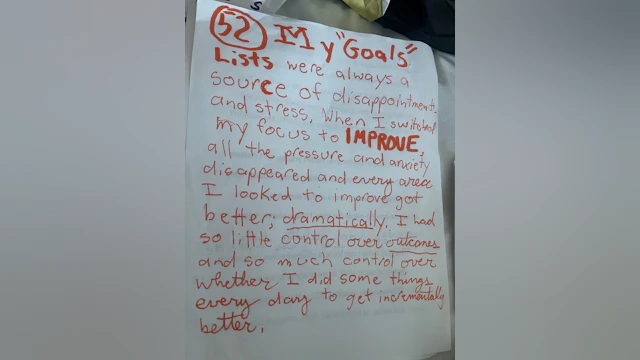 52 My "Goals"
Lists were always a
source of disappointment
and stress. When I switched
my focus to IMPROVE,
all the pressure and anxiety
disappeared and every area
I looked to improve got
better; dramatically. I had
so little control over outcomes
and so much control over
whether I did some things
every day to get incrementally
better.